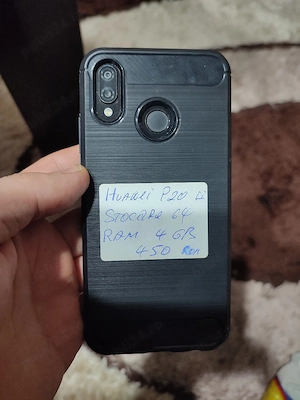 HUAWEI P20 Li
STOCARE 64
RAM 4 GB
450 RON